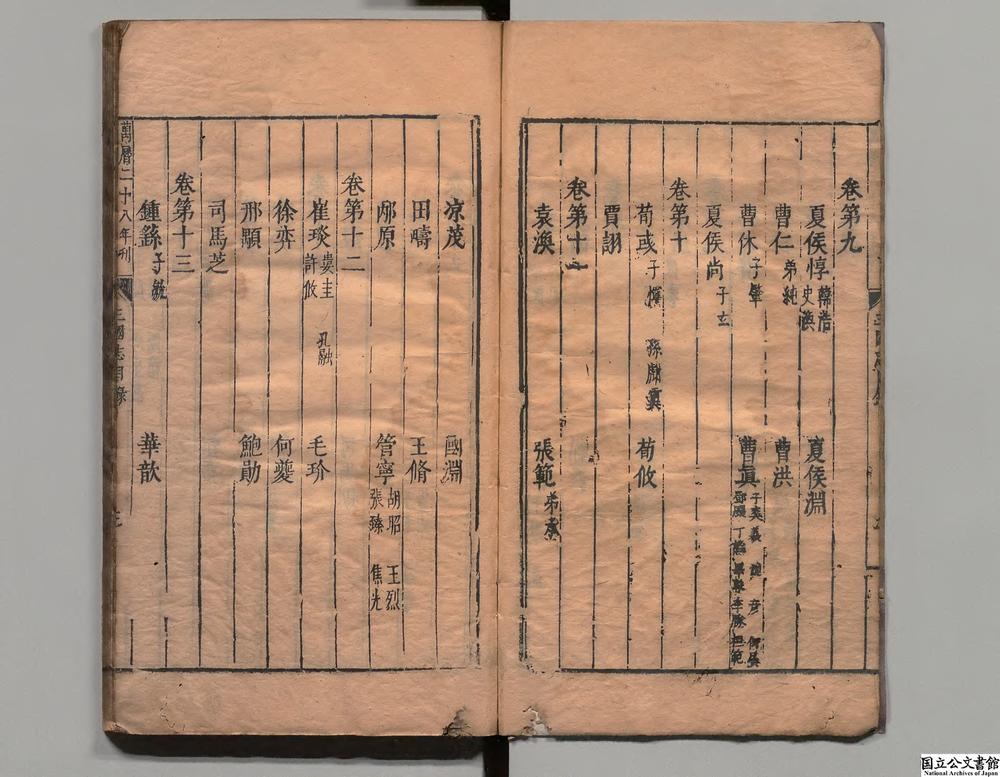 卷第九
夏侯惇 韓浩 史渙 夏侯淵
曹仁 弟純 曹洪
曹休 子肇 曹真 子爽 羲 訓 彥 何晏 鄧颺 丁謐 畢軌 李勝 桓範
夏侯尚 子玄
卷第十
荀彧 子惲 孫甝 霬 荀攸
賈詡
卷第十一
袁渙 張範 弟承
凉茂 國淵
田疇 王脩
邴原 管寧 胡昭 王烈 張臶 焦先
卷第十二
崔琰 婁圭 許攸 孔融 毛玠
徐奕 何夔
邢顒 鮑勛
司馬芝
卷第十三
鍾繇 子毓 華歆
萬曆二十八年刊
三國志目錄
国立公文書館
National Archives of Japan